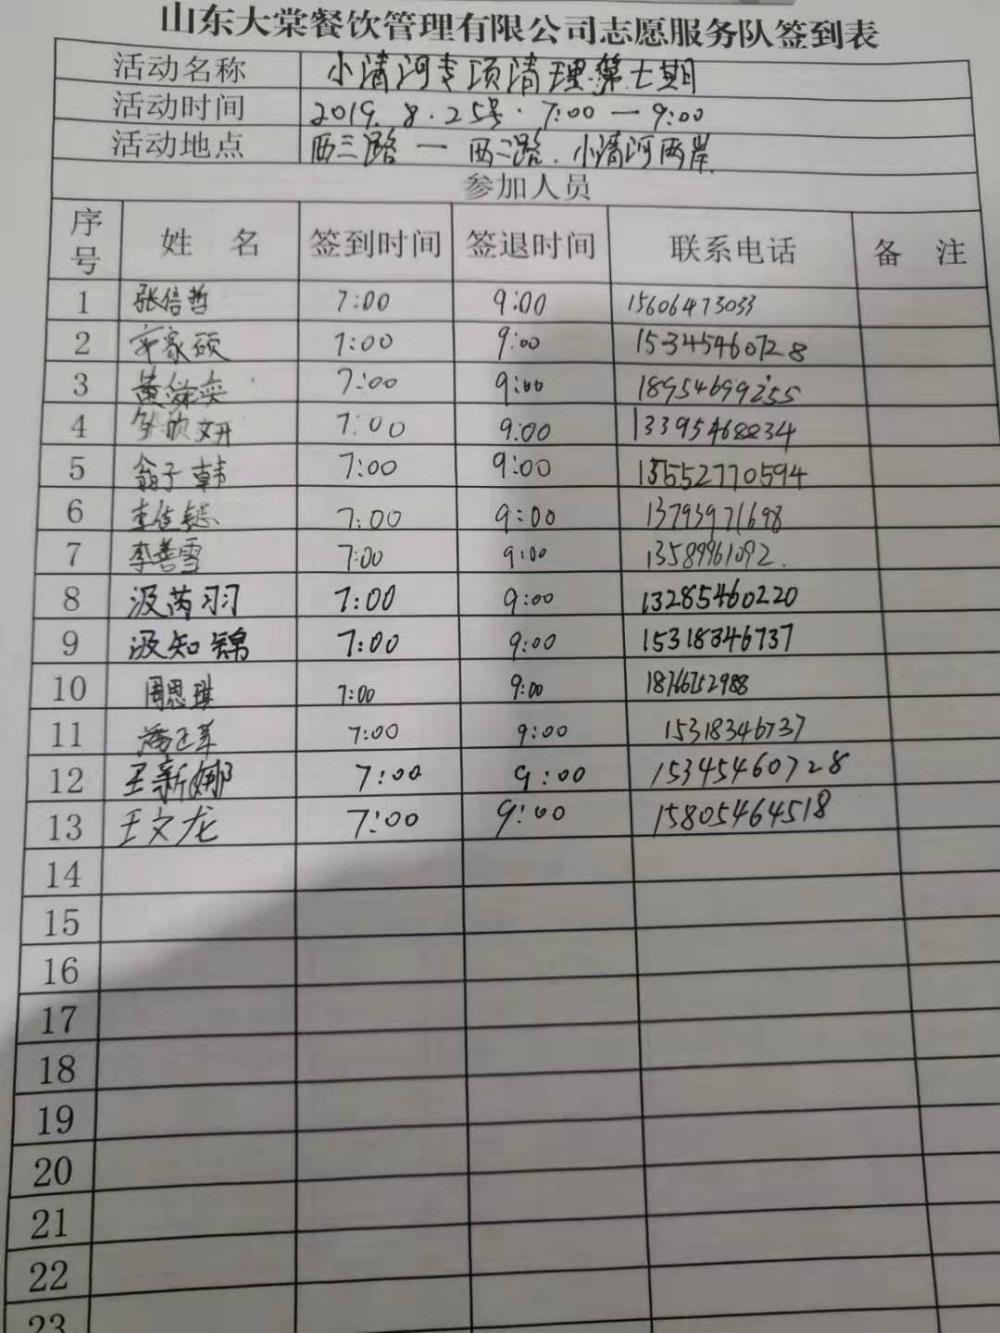 山东大棠餐饮管理有限公司志愿服务队签到表
活动名称 小清河专项清理第七期
活动时间 2019.8.25号·7:00—9:00
活动地点 西三路一西二路.小清河两岸
参加人员
序号 姓名 签到时间 签退时间 联系电话 备注
1 张信哲 7:00 9:00 15606473033
2 家硕 7:00 9:00 15345460728
3 黄奕 7:00 9:00 18954699255
4 欣妍 7:00 9:00
5 翁子韩 7:00 9:00 13552770594
6 李佳 7:00 9:00 13793971698
7 李善雪 7:00 9:00 13589961092.
8 汲芮羽 7:00 9:00 13285460220
9 汲知锦 7:00 9:00 15318346737
10 周思琪 7:00 9:00 18766752988
11 潘 7:00 9:00 15318346737
12 王新娜 7:00 9:00 15345460728
13 王文龙 7:00 9:00 15805464518
14
15
16
17
18
19
20
21
22
23